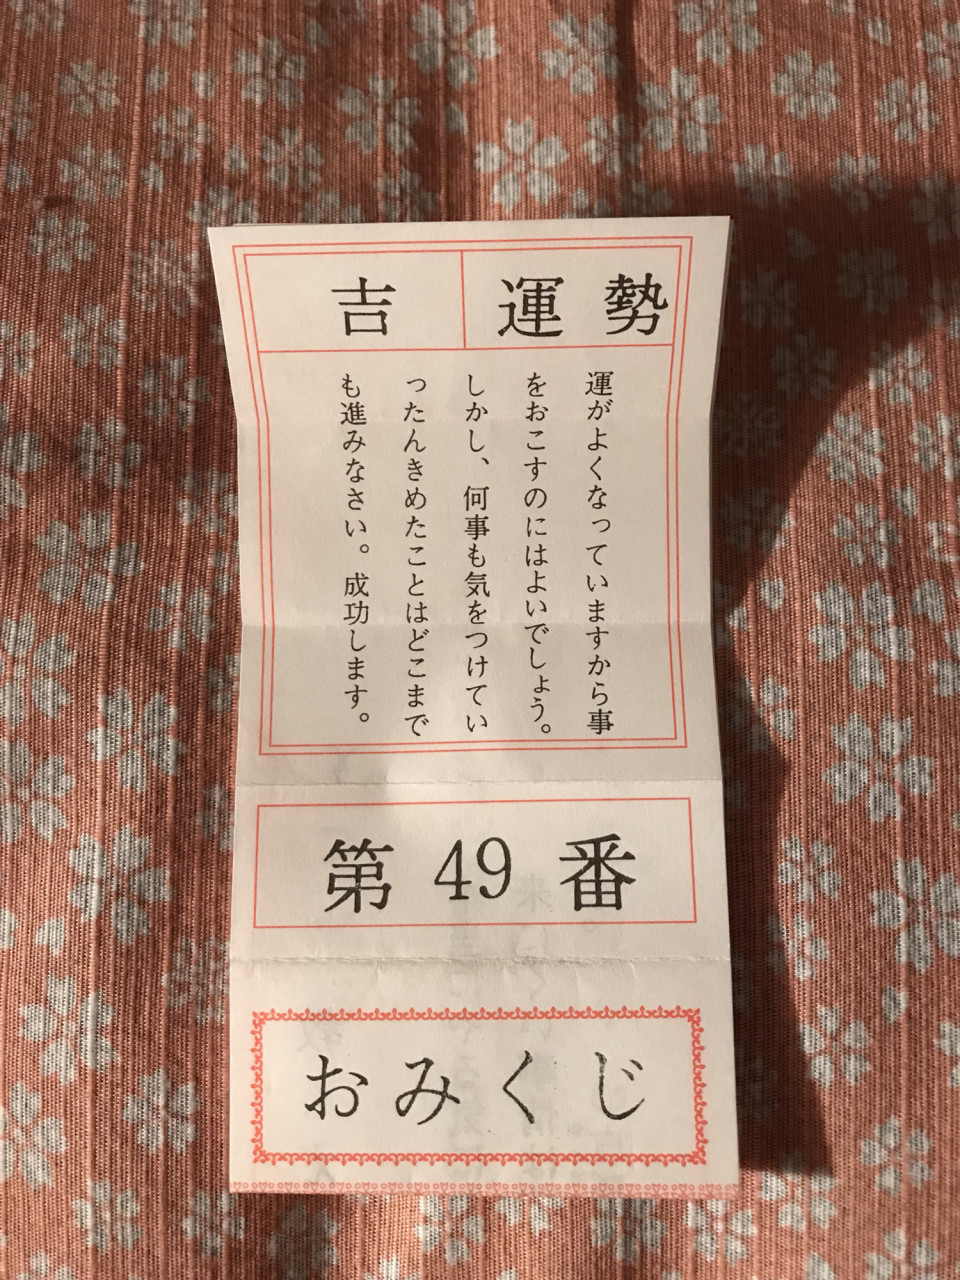 吉 運勢
運がよくなっていますから事
をおこすのにはよいでしょう。
しかし、何事も気をつけてい
ったんきめたことはどこまで
も進みなさい。成功します。
第49番
おみくじ